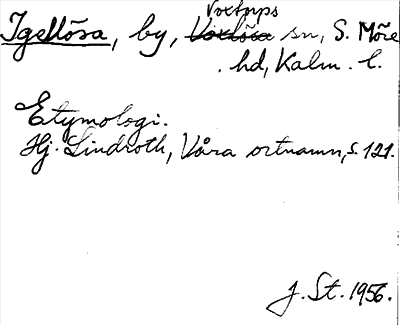 Voxtorps
Igellösa, by, Voxlösa sn, S. Möre
hd, Kalm. l.
Etymologi.
Hj. Lindroth, Våra ortnamn, s. 121.
J. St. 1956.